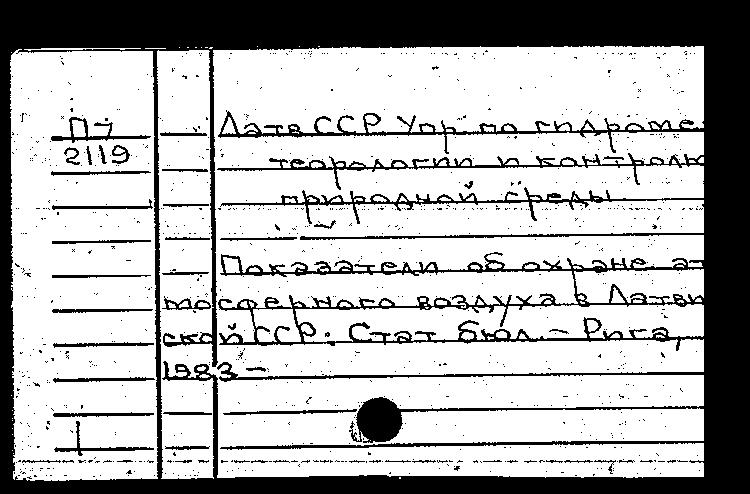 П-7
2119
Латв ССР Упр по гидроме-
теорологии и контролю
природной среды
Показатели об охране ат
мосферного воздуха в Латвий
ской ССР: Стат бюл. - Рига,
1983 -